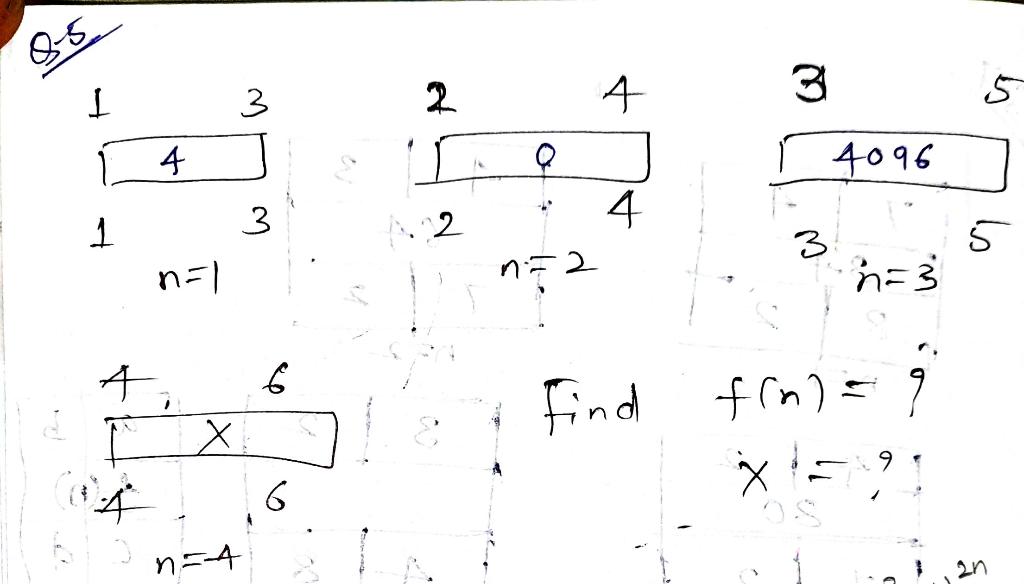 Q-5
1 3 2 4 3 5
4 0 4096
1 3 2 4 3 5
n=1 n=2 n=3
4 6 Find f(n) = ?
X X = ?
4 6
n=4
2n